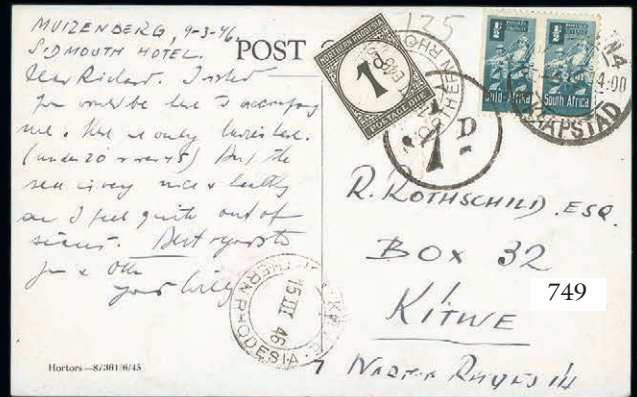 MUIZENBERG, 9-3-46.
SIDMOUTH HOTEL.
Dear Richard. I wished
you would be here to accompany
me. Here is only
(under 20 & over 45) But the
sea is very nice & healthy
an I feel quite out of
Best regards to
you &
your Willy
POST
125
NORTHERN RHODESIA
1
POSTAGE DUE
Suid-Afrika
South Africa
KAAPSTAD
4:00
1 D
R. ROTHSCHILD. ESQ.
BOX 32
KITWE
749
NORTHERN RHODESIA
15 III 46
Hortors—8/361/6/45